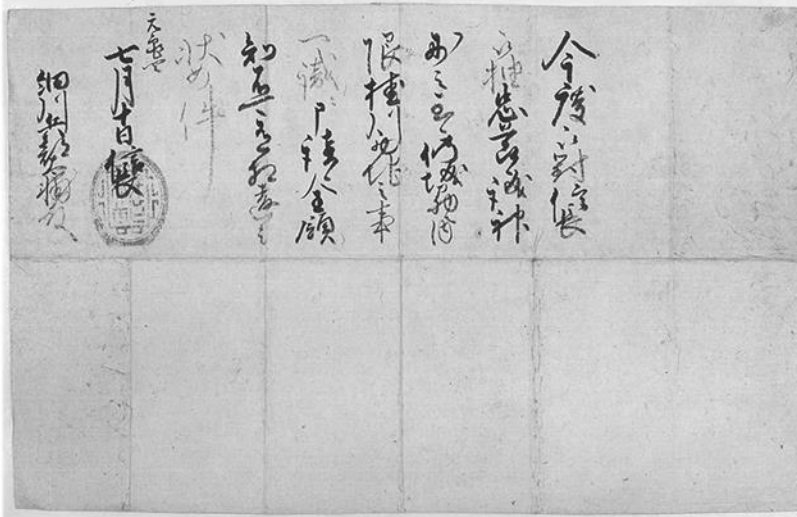 今度被對信長
被抽忠節候誠神
妙之至候仍城州内
限桂川西地之事
一識ニ申談候全領
知不可有相違之
状如件
元亀四
七月十日信長
細川兵部太輔殿